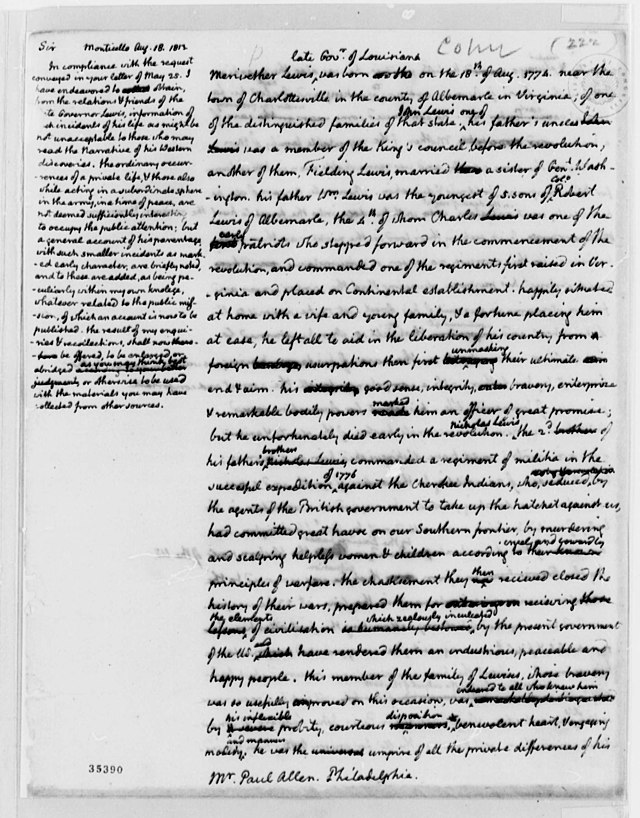 Copy
222
Sir Monticello Aug. 18. 1812
In compliance with the request
conveyed in your letter of May 25. I
have endeavored to obtain,
from the relations & friends of the
late Governor Lewis, information of
such incidents of his life as might be
not unacceptable to those who may
read the Narrative of his Western
discoveries. the ordinary occur-
rences of a private life, & those also
while acting in a subordinate sphere
in the army, in a time of peace, are
not deemed sufficiently interesting
to occupy the public attention; but
a general account of his parentage,
with such smaller incidents as mark-
-ed early character, are briefly noted,
and to these are added, as being pe-
culiarly within my own knolege,
whatever related to the public mis-
-sion, of which an account is now to be
published. the result of my enqui-
-ries & recollections, shall now
be offered, to be enlarged or
abridged as you may think best
or otherwise to be used
with the materials you may have
collected from other sources.
late Govr. of Louisiana
Meriwether Lewis, was born on the 18th of Aug. 1774. near the
town of Charlottesville in the county of Albemarle in Virginia, of one
John Lewis one of
of the distinguished families of that state. his father's uncles
Lewis was a member of the King's council, before the revolution,
another of them, Fielding Lewis, married a sister of Genl. Wash-
-ington. his father Wm. Lewis was the youngest of 5. sons of Colo. Robert
Lewis of Albemarle, the 4th. of whom Charles Lewis was one of the
early
patriots who stepped forward in the commencement of the
revolution, and commanded one of the regiments first raised in Vir-
-ginia and placed on Continental establishment. happily situated
at home with a wife and young family, & a fortune placing him
at ease, he left all to aid in the liberation of his country from
unmasking
foreign usurpations then first their ultimate
end & aim. his good sense, integrity, bravery, enterprize
marked
& remarkable bodily powers him an officer of great promise;
Nicholas Lewis
but he unfortunately died early in the revolution. the 2d. brothers of
brothers
his father's Nicholas Lewis, commanded a regiment of militia in the
of 1776
succesful expedition, against the Cherokee Indians, who, seduced by
the agents of the British government to take up the hatchet against us,
had committed great havoc on our Southern frontier, by murdering
cruel and cowardly
and scalping helpless women & children according to their
then
principles of warfare. the chastisement they recieved closed the
history of their wars, prepared them for recieving
the elements which zealously inculcated
of civilisation by the present government
of the US. have rendered them an industrious, peaceable and
happy people. this member of the family of Lewises, whose bravery
endeared to all who knew him
was so usefully improved on this occasion, was
his inflexible disposition
by probity, courteous benevolent heart, & engaging
and manners
modesty. he was the umpire of all the private differences of his
Mr. Paul Allen. Philadelphia.
35390